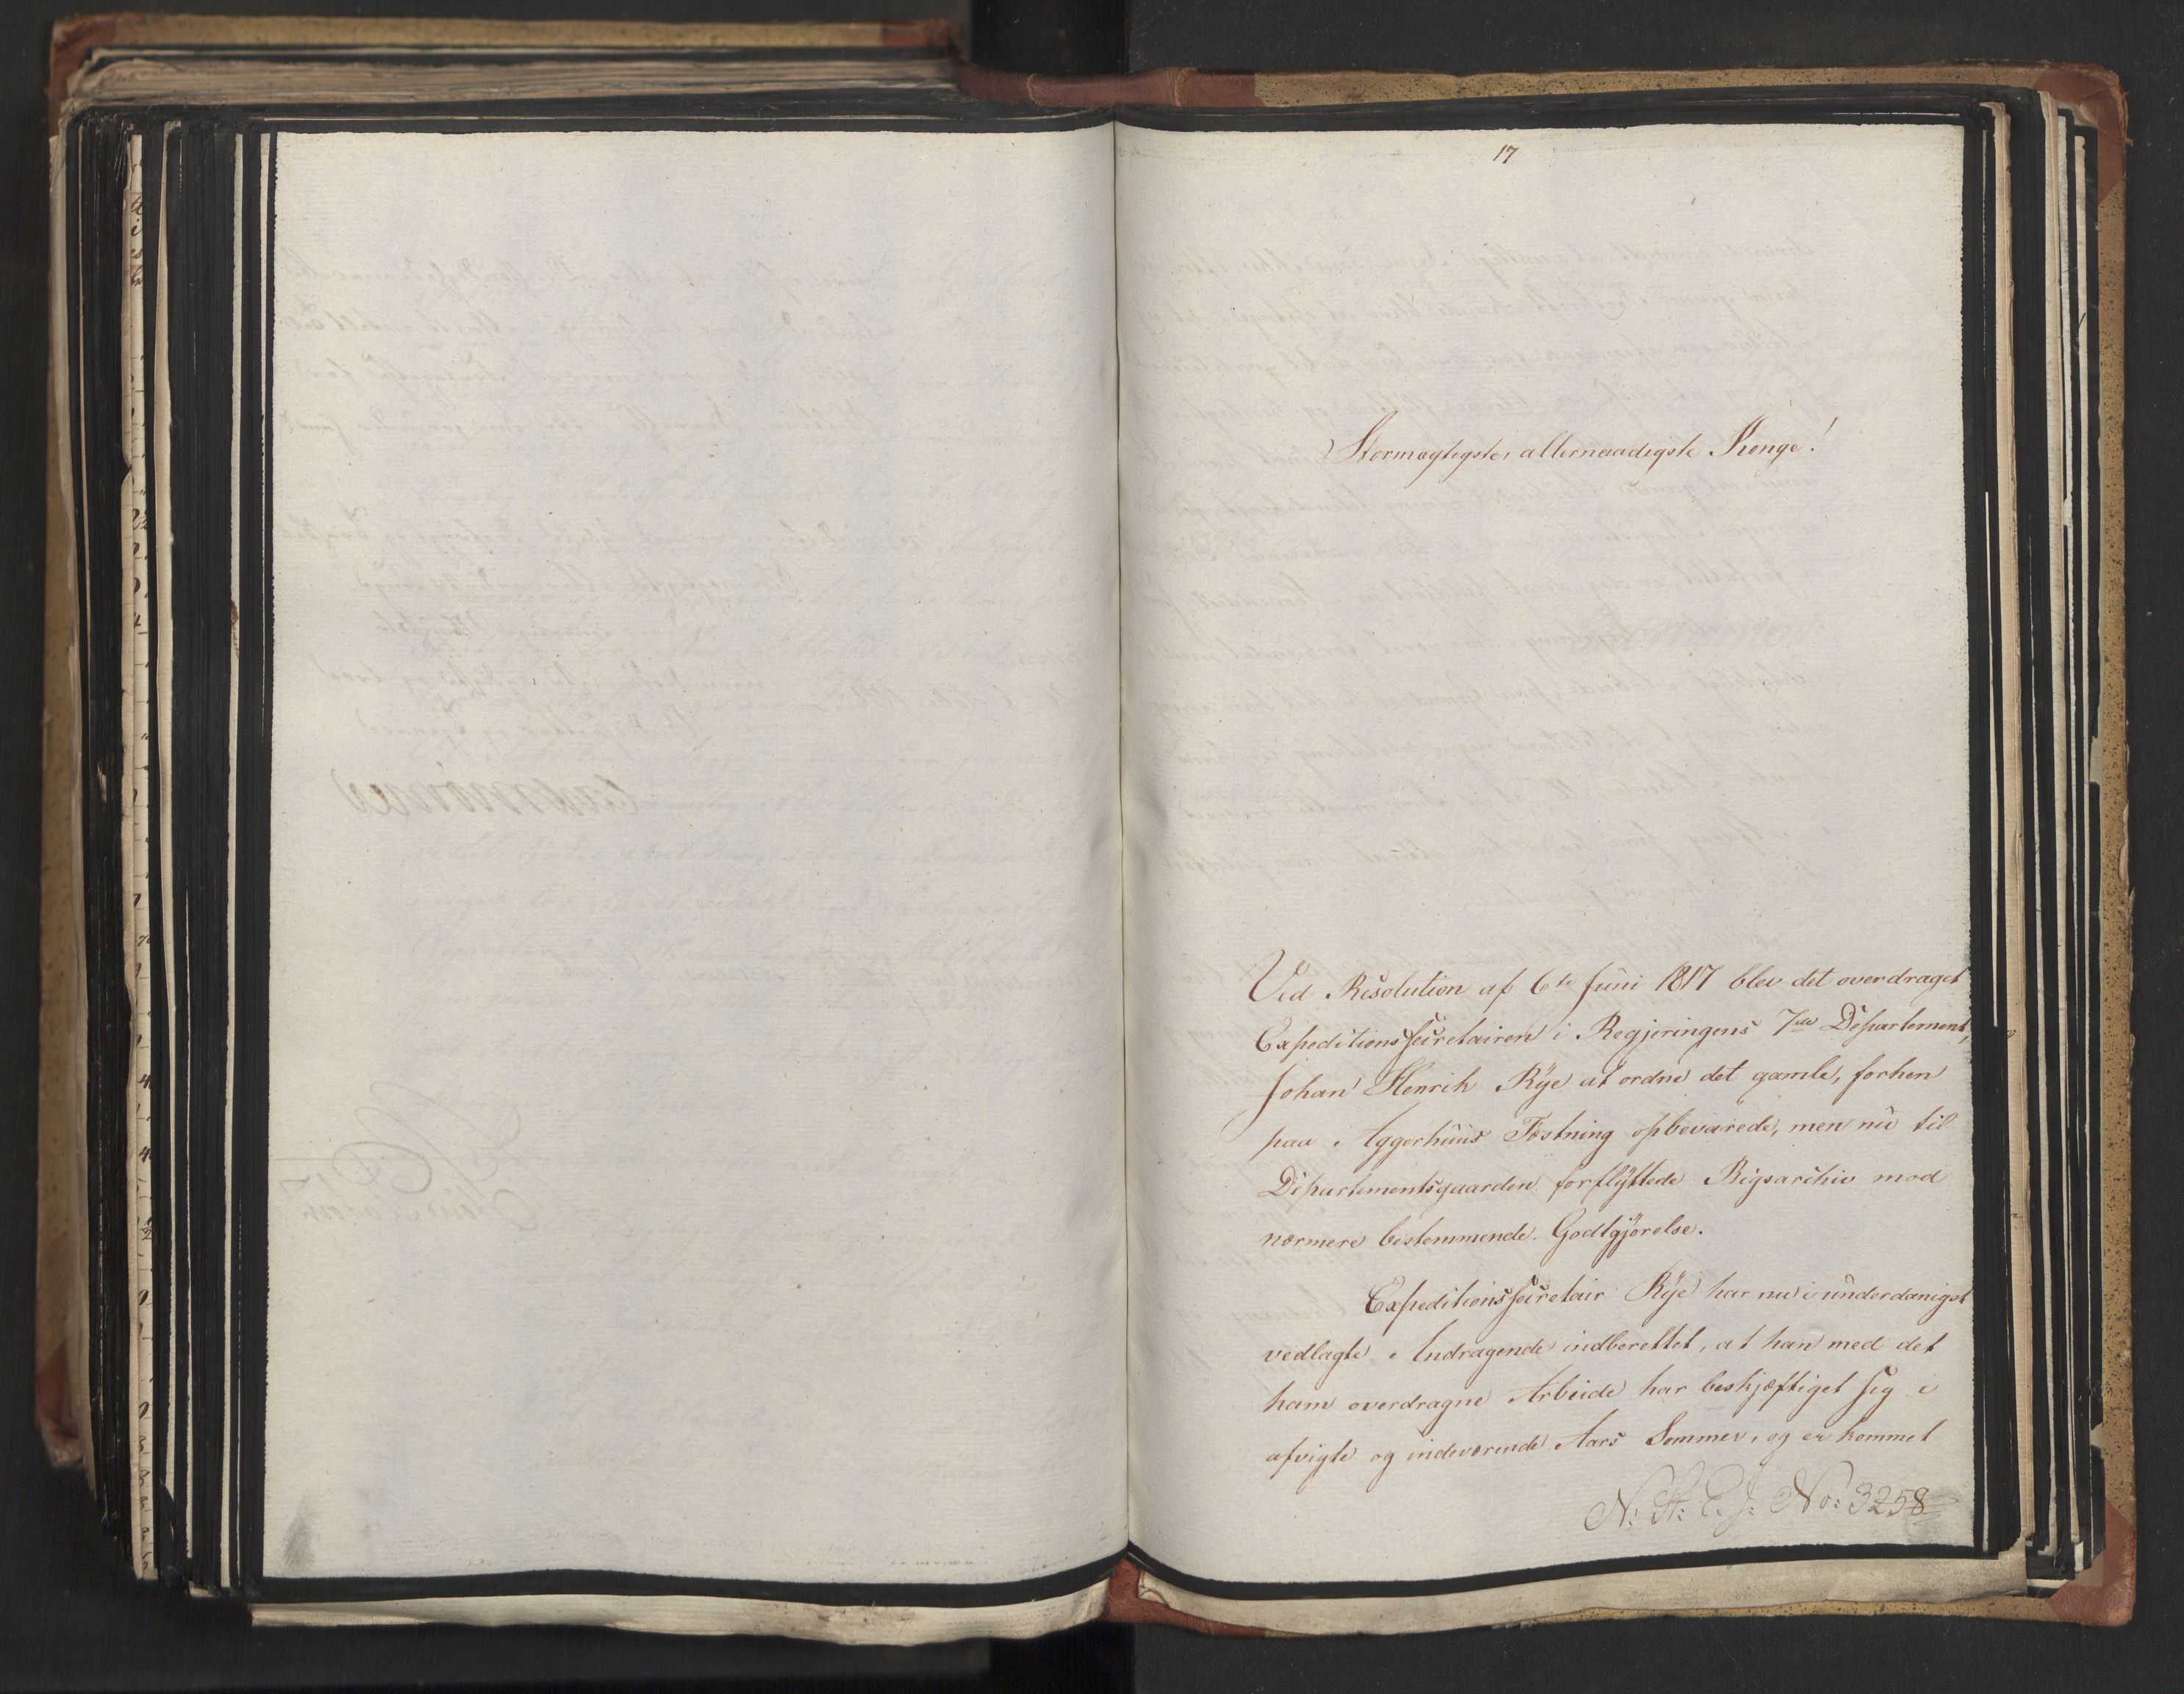 17
Stormægtigste, allernaadigste Konge!
Ved Resolution af 6te Juni 1817 blev det overdraget
Expeditionssecretairen i Regjeringens 7de Departement,
Johan Henrik Rÿe at ordne det gamle, forhen
paa Aggerhuus Fæstning opbevarede, men nu til
Departementsgaarden forflÿttede Rigsarchiv mod
nærmere bestemmende Godtgjörelse.
Expeditionssecretair Rÿe har nu i underdanigst
vedlagte Andragende indberettet, at han med det
ham overdragne Arbeide har beskjæftiget sig i
afvigte og indeværende Aars Sommer, og er kommet
N: St: E: J: No: 3258